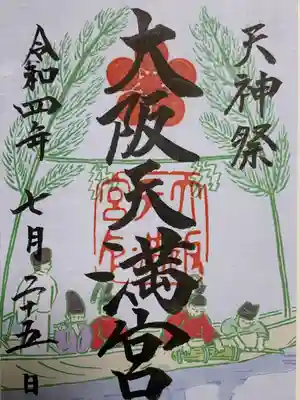 天神祭
大阪天満宮
令和四年 七月二十五日